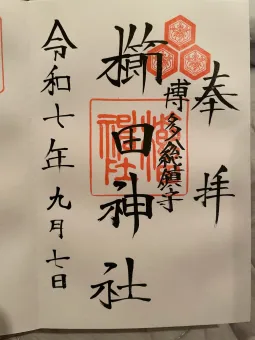 奉拝
博多総鎮守
櫛田神社
令和七年九月七日